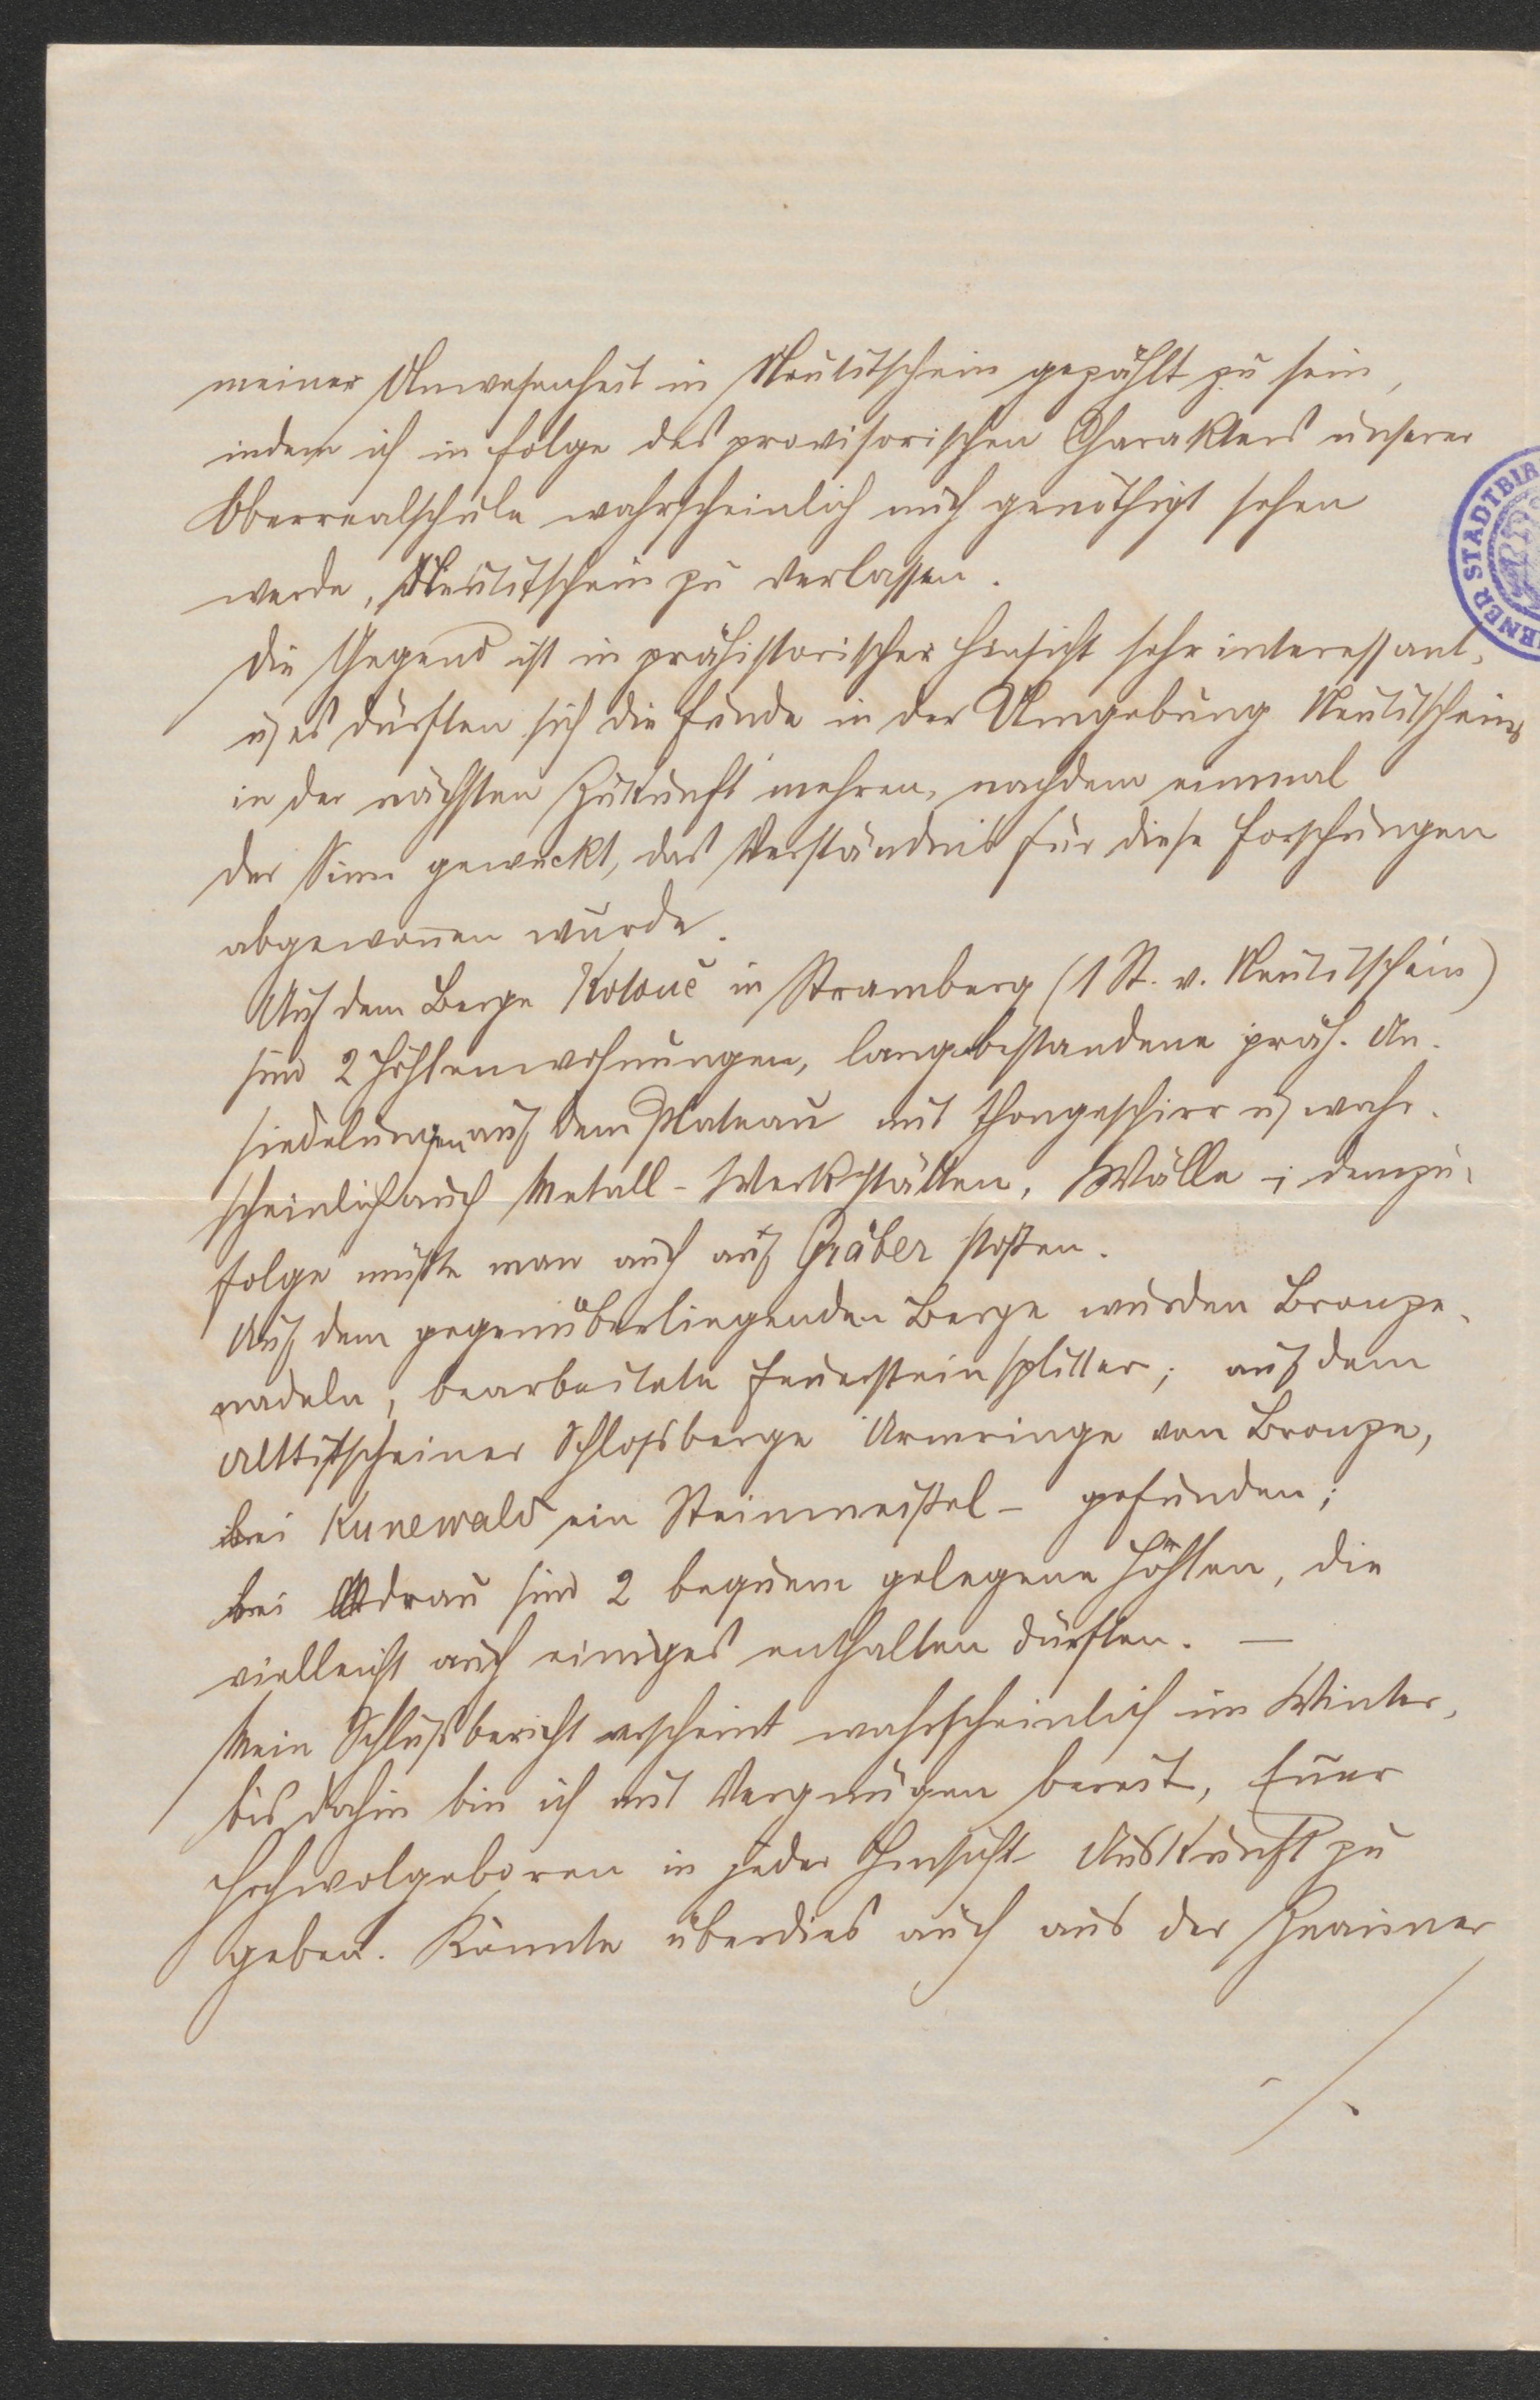 meiner Anwesenheit in Neutitschein gezählt zu sein,
indem ich in folge des provisorischen Charakters unserer
Oberrealschule wahrscheinlich mich genöthigt sehen
werde, Neutitschein zu verlassen.
Die Gegend ist in prähistorischer Hinsicht sehr interessant,
u es dürften sich die Funde in der Umgebung Neutitscheins
in der nächsten Zukunft mehren, nachdem einmal
der Sinn geweckt, das Verständnis für diese Forschungen
abgewonnen wurde.
Auf dem Berge Kotouč in Stramberg (1 St. v. Neutitschein)
sind 2 Höhlenwohnungen, langbestandene präh. An-
siedelungen auf dem Plateau mit Thongeschirr u wahr-
scheinlich auch Metall-Werkstätten, Wälle -; demzu-
folge müßte man auch auf Gräber stoßen.
Auf dem gegenüberliegenden Berge wurden Bronze-
nadeln, bearbeitete Feuersteinsplitter; auf dem
Alttitscheiner Schloßberge Armringe von Bronze,
bei Kunewald ein Steinmeißel - gefunden;
bei Odrau sind 2 bequem gelegene Höhlen, die
vielleicht auch einiges enthalten dürften. —
Mein Schlußbericht erscheint wahrscheinlich im Winter,
bis dahin bin ich mit Vergnügen bereit, Euer
Hochwolgeboren in jeder Hinsicht Auskunft zu
geben. Könnte überdies auch aus der Znaimer
./.
STADTBIB